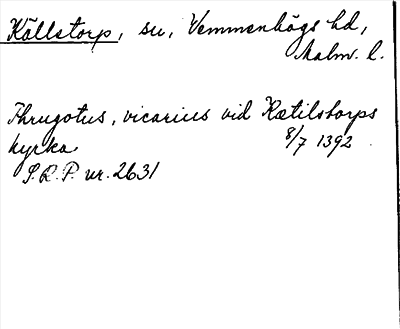 Källstorp, sn, Vemmenhögs hd,
Malm. l.
Thrugotus, vicarius vid Kætilstorps
kyrka 8/7 1392.
S.R.P. nr. 2631